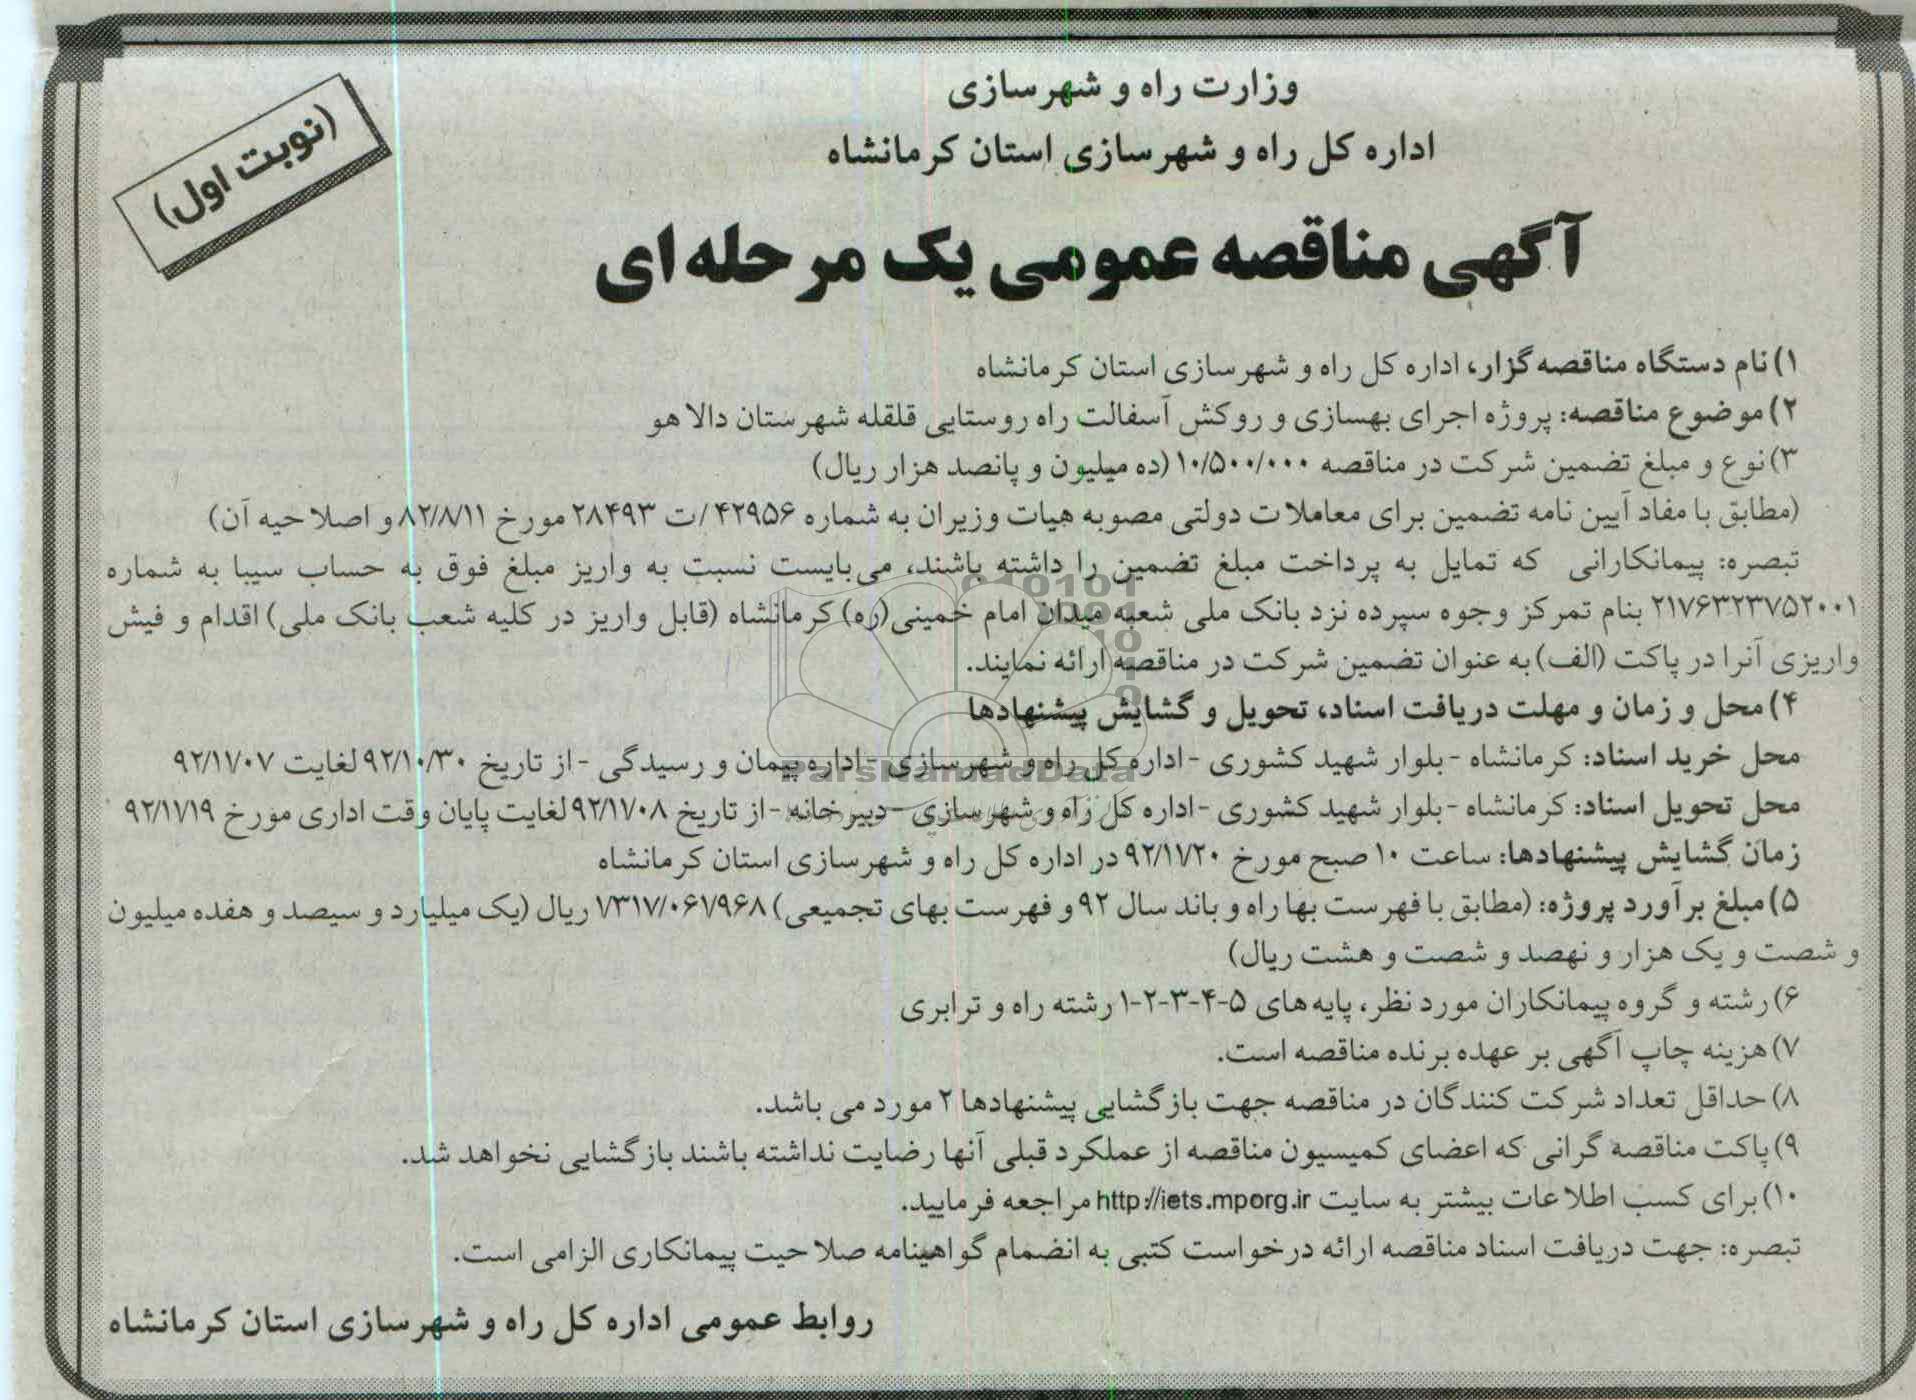 وزارت راه و شهرسازی
اداره کل راه و شهرسازی استان کرمانشاه
(نوبت اول)
آگهی مناقصه عمومی یک مرحله ای
۱) نام دستگاه مناقصه گزار، اداره کل راه و شهرسازی استان کرمانشاه
۲) موضوع مناقصه: پروژه اجرای بهسازی و روکش آسفالت راه روستایی قلقله شهرستان دالاهو
۳) نوع و مبلغ تضمین شرکت در مناقصه ۱۰/۵۰۰/۰۰۰ (ده میلیون و پانصد هزار ریال)
(مطابق با مفاد آیین نامه تضمین برای معاملات دولتی مصوبه هیات وزیران به شماره ۴۲۹۵۶/ت ۲۸۴۹۳ مورخ ۸۲/۸/۱۱ و اصلاحیه آن)
تبصره: پیمانکارانی که تمایل به پرداخت مبلغ تضمین را داشته باشند، می‌بایست نسبت به واریز مبلغ فوق به حساب سیبا به شماره
۲۱۷۶۳۲۳۷۵۲۰۰۱ بنام تمرکز وجوه سپرده نزد بانک ملی شعبه میدان امام خمینی(ره) کرمانشاه (قابل واریز در کلیه شعب بانک ملی) اقدام و فیش
واریزی آنرا در پاکت (الف) به عنوان تضمین شرکت در مناقصه ارائه نمایند.
۴) محل و زمان و مهلت دریافت اسناد، تحویل و گشایش پیشنهادها
محل خرید اسناد: کرمانشاه - بلوار شهید کشوری - اداره کل راه و شهرسازی - اداره پیمان و رسیدگی - از تاریخ ۹۲/۱۰/۳۰ لغایت ۹۲/۱۱/۰۷
محل تحویل اسناد: کرمانشاه - بلوار شهید کشوری - اداره کل راه و شهرسازی - دبیرخانه - از تاریخ ۹۲/۱۱/۰۸ لغایت پایان وقت اداری مورخ ۹۲/۱۱/۱۹
زمان گشایش پیشنهادها: ساعت ۱۰ صبح مورخ ۹۲/۱۱/۲۰ در اداره کل راه و شهرسازی استان کرمانشاه
۵) مبلغ برآورد پروژه: (مطابق با فهرست بها راه و باند سال ۹۲ و فهرست بهای تجمیعی) ۱/۳۱۷/۰۶۱/۹۶۸ ریال (یک میلیارد و سیصد و هفده میلیون
و شصت و یک هزار و نهصد و شصت و هشت ریال)
۶) رشته و گروه پیمانکاران مورد نظر، پایه های ۵-۴-۳-۲-۱ رشته راه و ترابری
۷) هزینه چاپ آگهی بر عهده برنده مناقصه است.
۸) حداقل تعداد شرکت کنندگان در مناقصه جهت بازگشایی پیشنهادها ۲ مورد می باشد.
۹) پاکت مناقصه گرانی که اعضای کمیسیون مناقصه از عملکرد قبلی آنها رضایت نداشته باشند بازگشایی نخواهد شد.
۱۰) برای کسب اطلاعات بیشتر به سایت http://iets.mporg.ir مراجعه فرمایید.
تبصره: جهت دریافت اسناد مناقصه ارائه درخواست کتبی به انضمام گواهینامه صلاحیت پیمانکاری الزامی است.
روابط عمومی اداره کل راه و شهرسازی استان کرمانشاه
ParsNamadData